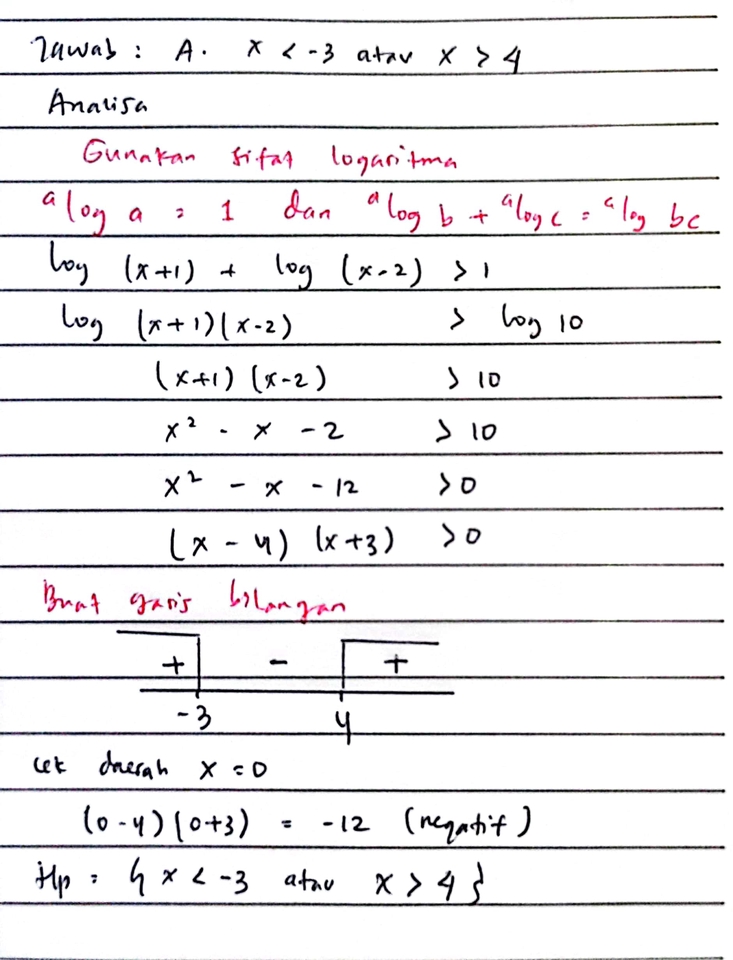 Jawab : A. x < -3 atau x > 4
Analisa
Gunakan sifat logaritma
ᵃlog a = 1 dan ᵃlog b + ᵃlog c = ᵃlog bc
log (x+1) + log (x-2) > 1
log (x+1)(x-2) > log 10
(x+1) (x-2) > 10
x² - x - 2 > 10
x² - x - 12 > 0
(x - 4) (x+3) > 0
Buat garis bilangan
+ - +
-3 4
cek daerah x = 0
(0-4)(0+3) = -12 (negatif)
Hp = { x < -3 atau x > 4 }